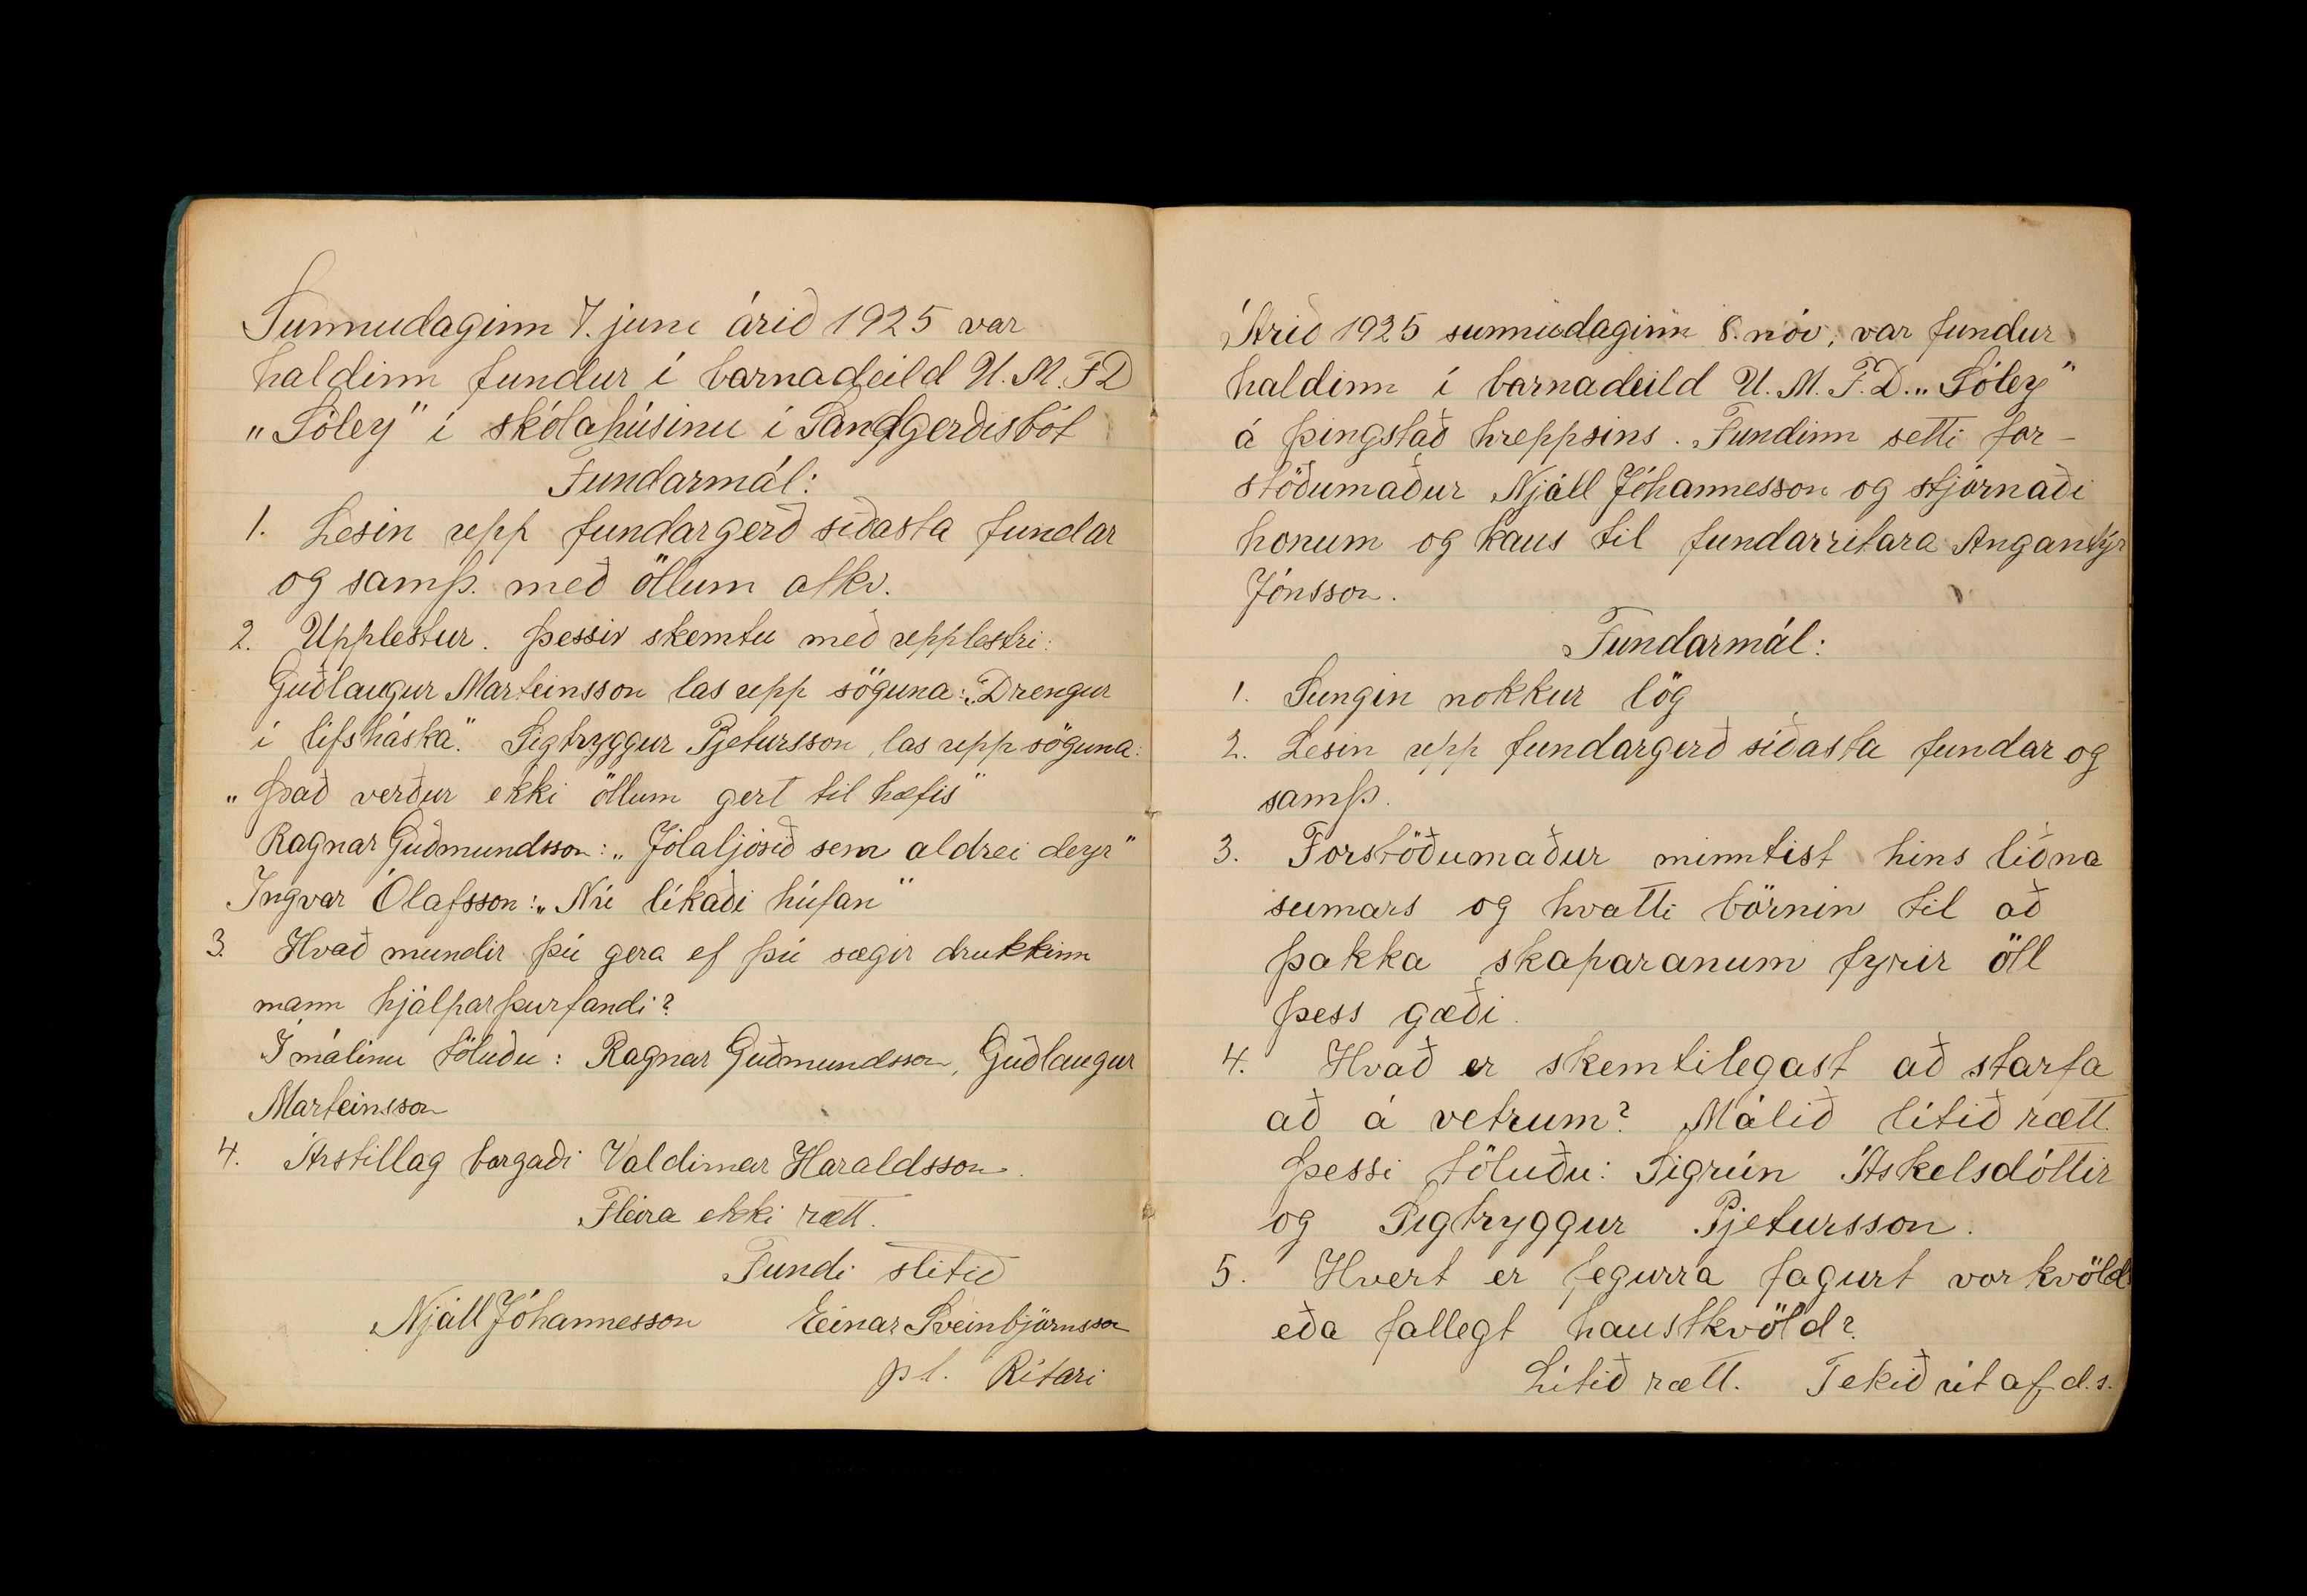 Sunnudaginn 7. juni árið 1925 var
haldinn fundur í barnadeild U.M.F.D
„Sóley" í skólahúsinu í Sandgerðisbót
Fundarmál:
1. Lesin upp fundargerð síðasta fundar
og samþ. með öllum atkv.
2. Upplestur. Þessir skemtu með upplestri:
Guðlaugur Marteinsson las upp söguna: „Drengur
í lífsháska". Sigtryggur Pjetursson, las upp söguna:
„Það verður ekki öllum gert til hæfis"
Ragnar Guðmundsson: „Jólaljósið sem aldrei deyr"
Ingvar Ólafsson: „Nú líkaði húfan"
3. Hvað mundir þú gera ef þú sægir drukkinn
mann hjálparþurfandi?
Í málinu töluðu: Ragnar Guðmundsson, Guðlaugur
Marteinsson
4. Árstillag borgaði Valdimar Haraldsson.
Fleira ekki rætt.
Fundi slitið
Njáll Jóhannesson Einar Sveinbjörnsson
p.t. Ritari
Árið 1925 sunnudaginn 8. nóv. var fundur
haldinn í barnadeild U.M.F.D. „Sóley"
á þingstað hreppsins. Fundinn setti for-
stöðumaður Njáll Jóhannesson og stjórnaði
honum og kaus til fundarritara Angantýr
Jónsson.
Fundarmál:
1. Sungin nokkur lög
2. Lesin upp fundargerð síðasta fundar og
samþ.
3. Forstöðumaður minntist hins liðna
sumars og hvatti börnin til að
þakka skaparanum fyrir öll
þess gæði.
4. Hvað er skemtilegast að starfa
að á vetrum? Málið lítið rætt.
Þessi töluðu: Sigrún Áskelsdóttir
og Sigtryggur Pjetursson.
5. Hvert er fegurra fagurt vorkvöld
eða fallegt haustkvöld?
Lítið rætt. Tekið út af d.s.